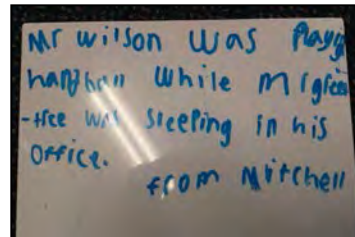 Mr wilson was Playg
handball while Mrgreen
-tree was sleeping in his
Office.
from Mitchell